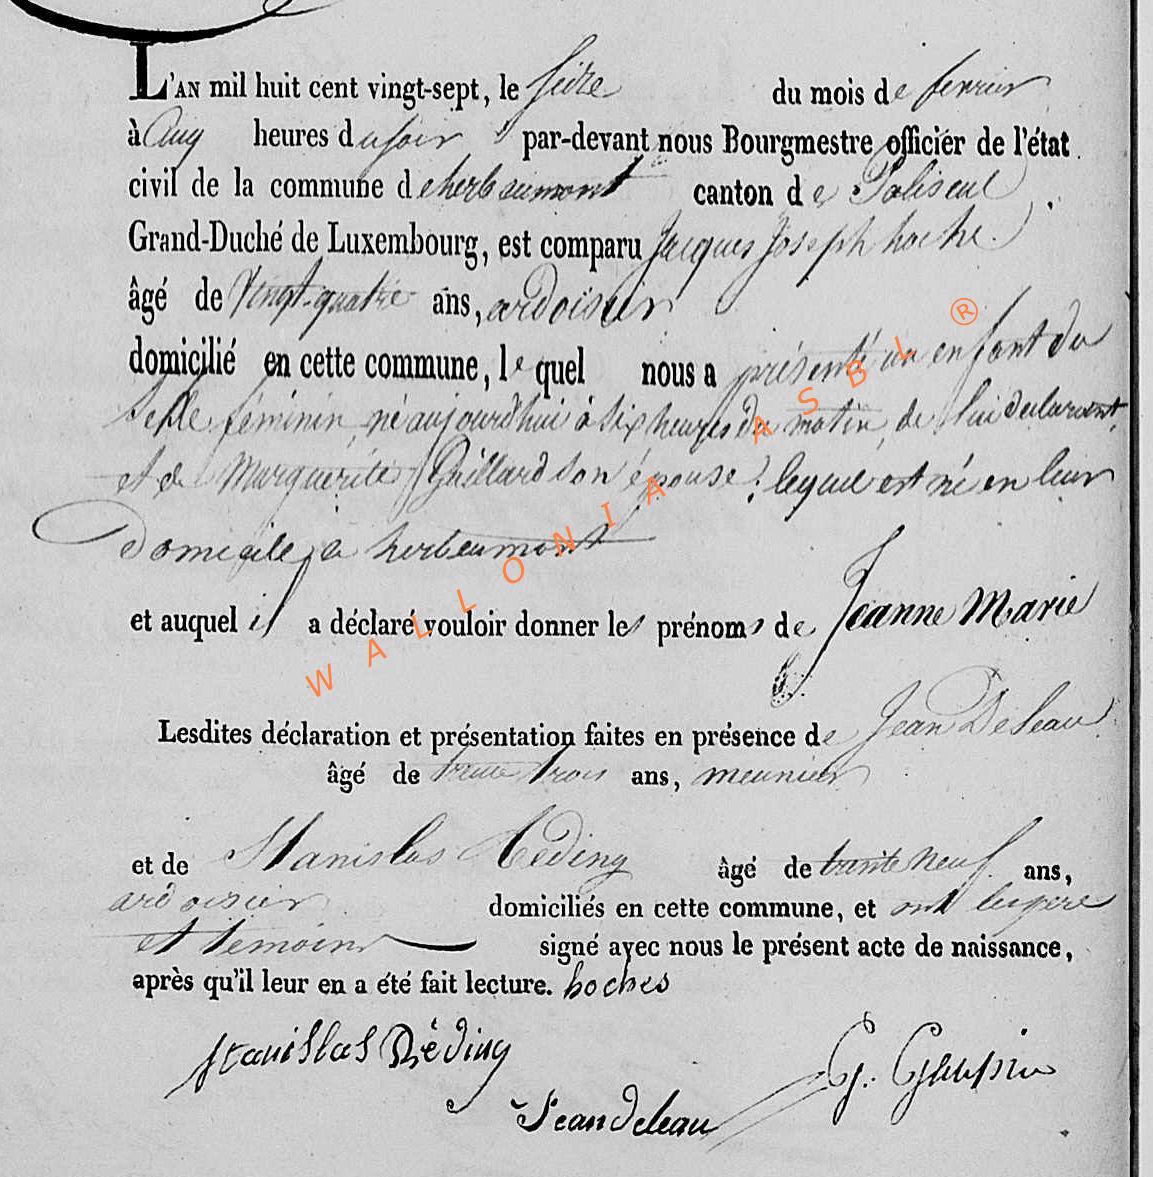 L'AN mil huit cent vingt-sept, le seize du mois de fevrier
à cinq heures du soir par-devant nous Bourgmestre officier de l'état
civil de la commune d'herbeumont canton de Paliseul
Grand-Duché de Luxembourg, est comparu Jacques Joseph hoche
âgé de vingt-quatre ans, ardoisier
domicilié en cette commune, lequel nous a présenté un enfant du
sexe féminin, né aujourd'hui à six heures du matin, de lui declarant,
et de Marguerite Guillard son épouse, lequel est né en leur
domicile, a herbeumont
et auquel il a déclaré vouloir donner les prénoms de Jeanne Marie
Lesdites déclaration et présentation faites en présence de Jean Deleau
âgé de trente trois ans, meunier
et de Stanislas Réding âgé de trente neuf ans,
ardoisier domiciliés en cette commune, et ont les pere
et temoins signé avec nous le présent acte de naissance,
après qu'il leur en a été fait lecture. hoches
Stanislas Réding
G.
Jean deleau
WALLONIA ASBL ®